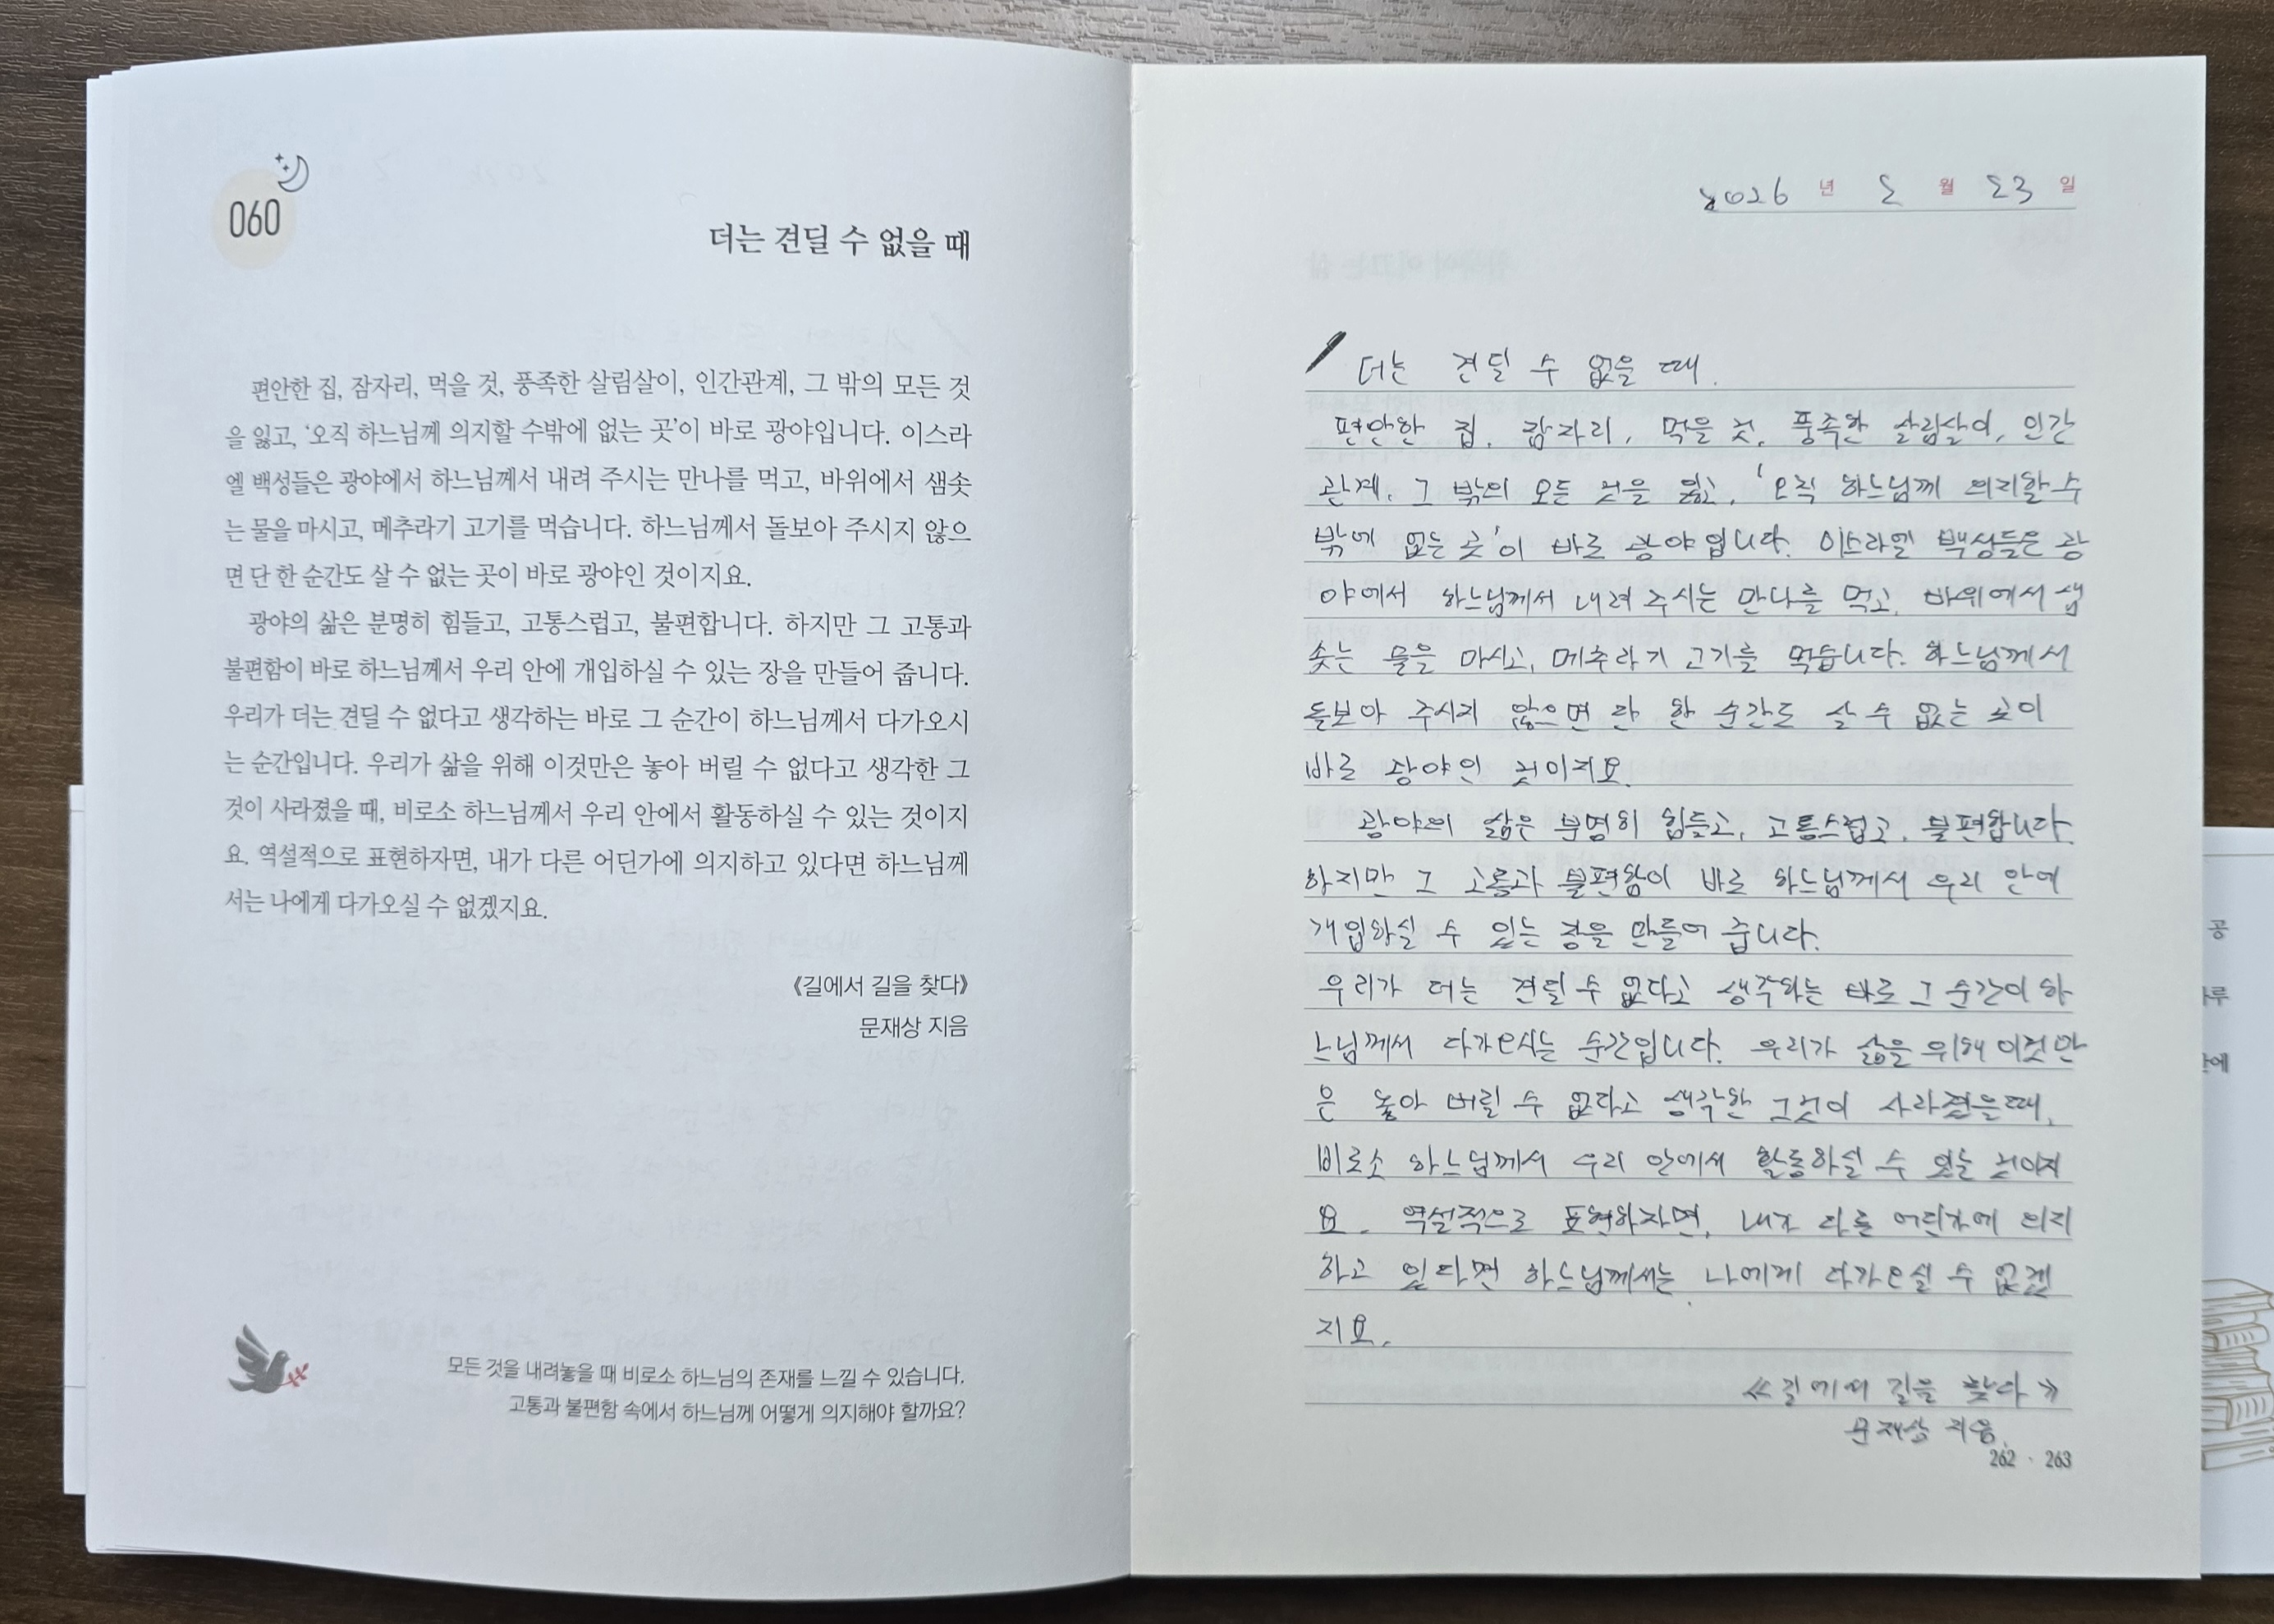 060
더는 견딜 수 없을 때
편안한 집, 잠자리, 먹을 것, 풍족한 살림살이, 인간관계, 그 밖의 모든 것
을 잃고, ‘오직 하느님께 의지할 수밖에 없는 곳’이 바로 광야입니다. 이스라
엘 백성들은 광야에서 하느님께서 내려 주시는 만나를 먹고, 바위에서 샘솟
는 물을 마시고, 메추라기 고기를 먹습니다. 하느님께서 돌보아 주시지 않으
면 단 한 순간도 살 수 없는 곳이 바로 광야인 것이지요.
광야의 삶은 분명히 힘들고, 고통스럽고, 불편합니다. 하지만 그 고통과
불편함이 바로 하느님께서 우리 안에 개입하실 수 있는 장을 만들어 줍니다.
우리가 더는 견딜 수 없다고 생각하는 바로 그 순간이 하느님께서 다가오시
는 순간입니다. 우리가 삶을 위해 이것만은 놓아 버릴 수 없다고 생각한 그
것이 사라졌을 때, 비로소 하느님께서 우리 안에서 활동하실 수 있는 것이지
요. 역설적으로 표현하자면, 내가 다른 어딘가에 의지하고 있다면 하느님께
서는 나에게 다가오실 수 없겠지요.
《길에서 길을 찾다》
문재상 지음
모든 것을 내려놓을 때 비로소 하느님의 존재를 느낄 수 있습니다.
고통과 불편함 속에서 하느님께 어떻게 의지해야 할까요?
2026 년 2 월 23 일
더는 견딜 수 없을 때.
편안한 집, 잠자리, 먹을 것, 풍족한 살림살이, 인간
관계, 그 밖의 모든 것을 잃고, ‘오직 하느님께 의지할 수
밖에 없는 곳’이 바로 광야입니다. 이스라엘 백성들은 광
야에서 하느님께서 내려 주시는 만나를 먹고, 바위에서 샘
솟는 물을 마시고, 메추라기 고기를 먹습니다. 하느님께서
돌보아 주시지 않으면 단 한 순간도 살 수 없는 곳이
바로 광야인 것이지요.
광야의 삶은 분명히 힘들고, 고통스럽고, 불편합니다.
하지만 그 고통과 불편함이 바로 하느님께서 우리 안에
개입하실 수 있는 장을 만들어 줍니다.
우리가 더는 견딜 수 없다고 생각하는 바로 그 순간이 하
느님께서 다가오시는 순간입니다. 우리가 삶을 위해 이것만
은 놓아 버릴 수 없다고 생각한 그것이 사라졌을때,
비로소 하느님께서 우리 안에서 활동하실 수 있는 것이지
요. 역설적으로 표현하자면, 내가 다른 어딘가에 의지
하고 있다면 하느님께서는 나에게 다가오실 수 없겠
지요.
《길에서 길을 찾다》
문재상 지음.
262 · 263
공
루
에